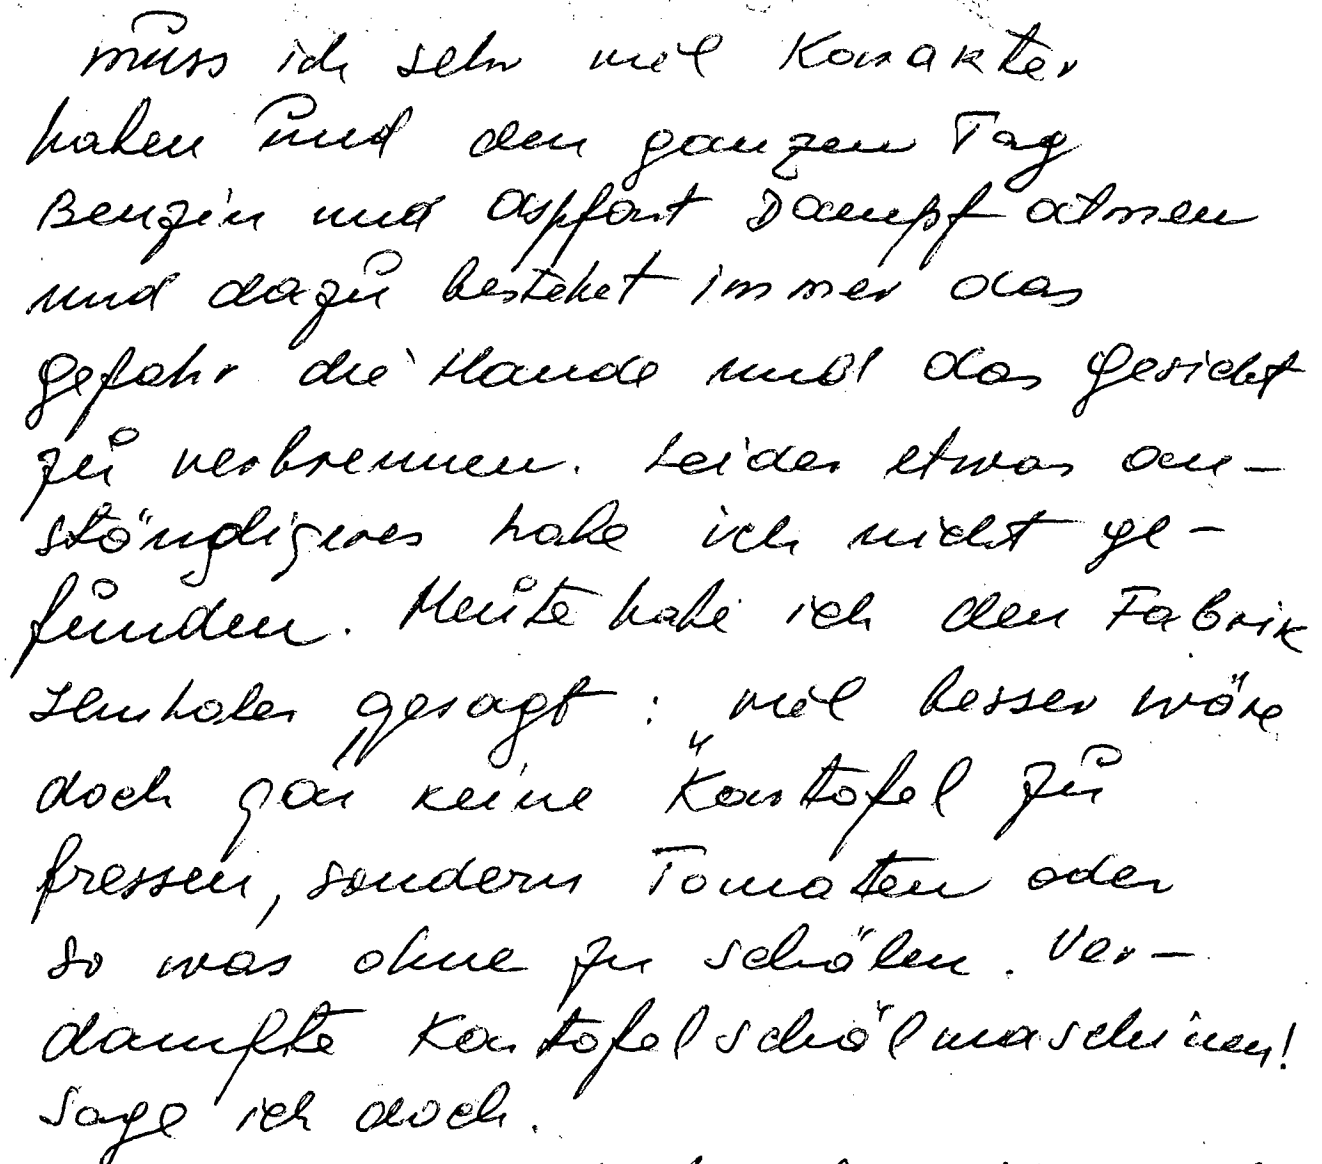 muss ich sehr viel Karakter
haben und den ganzen Tag
Benzin und Aspfart Dampf atmen
und dazu bestehet immer das
gefahr die Hände und das Gesicht
zu verbrennen. Leider etwas an-
ständigeres habe ich nicht ge-
funden. Heute habe ich den Fabrik
gesagt: viel besser wäre
doch gar keine "Kartofel zu
fressen, sondern Tomaten oder
so was ohne zu schälen. Ver-
dampfte Kartofelschälmaschinen!
Sage ich doch.